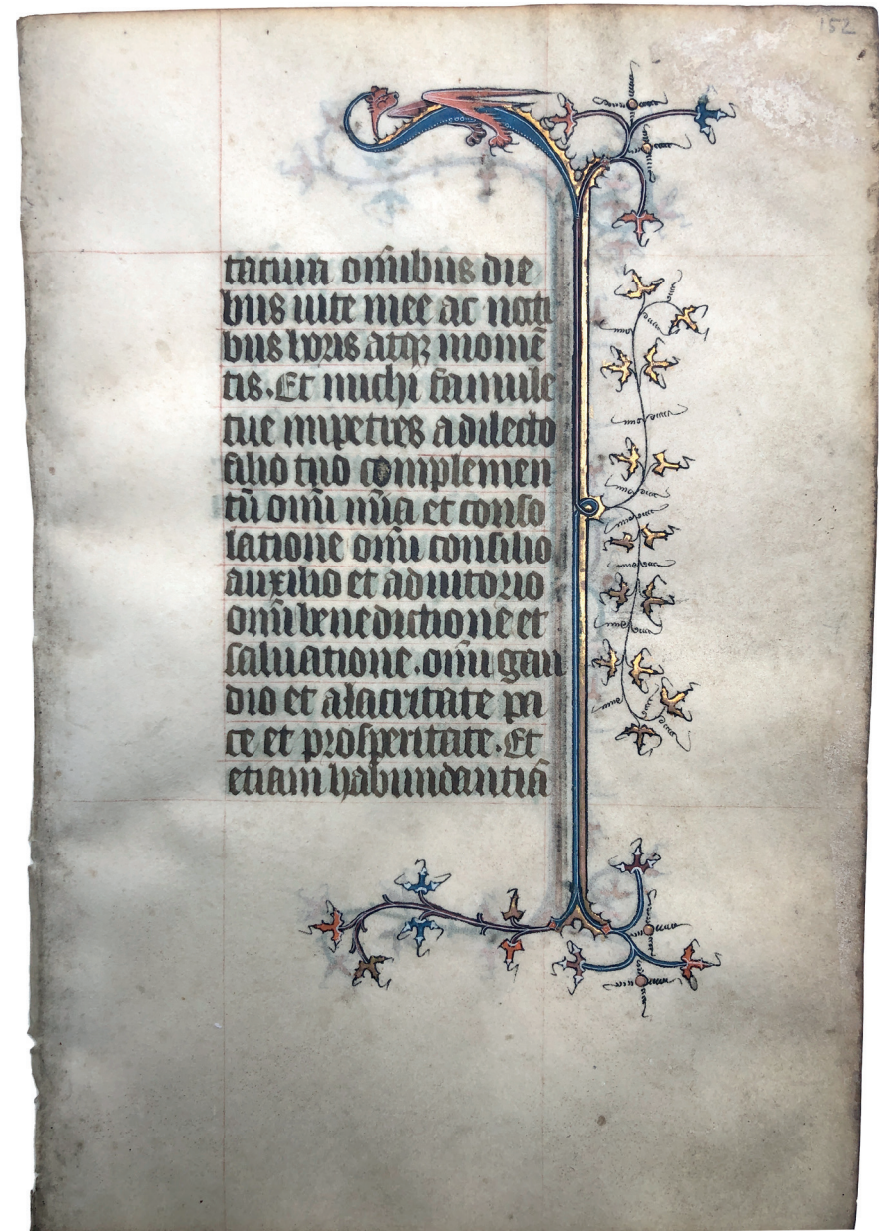 152
tatura om̄ibus die
bus uite mee ac nocti
bus horis atqꝫ momē
tis. Et michi famule
tue impetres a dilecto
filio tuo complemen
tū om̄i nīa et conso
latione om̄i consilio
auxilio et adiutorio
om̄i benedictione et
saluatione. om̄i gau
dio et alacritate pa
ce et prosperitate. Et
etiam habundantiā